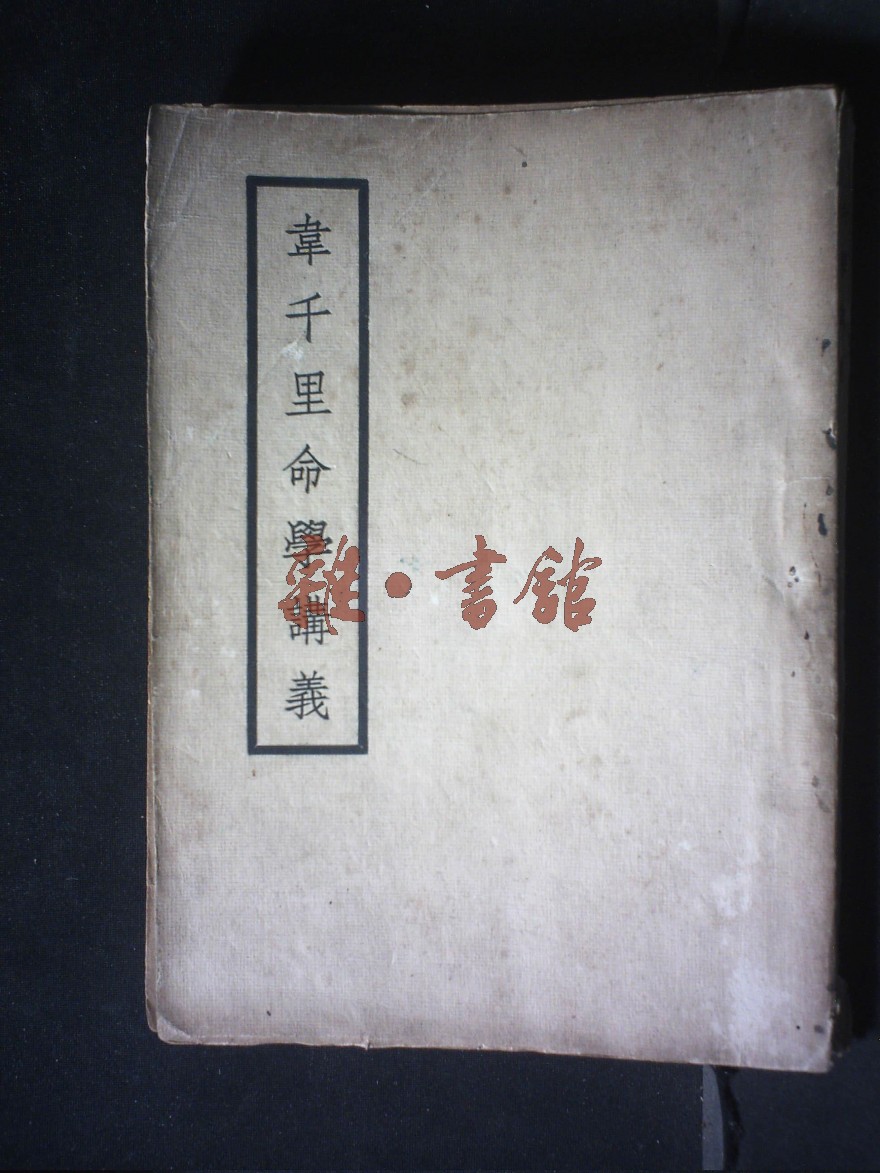 韋千里命學講義
雜·書館